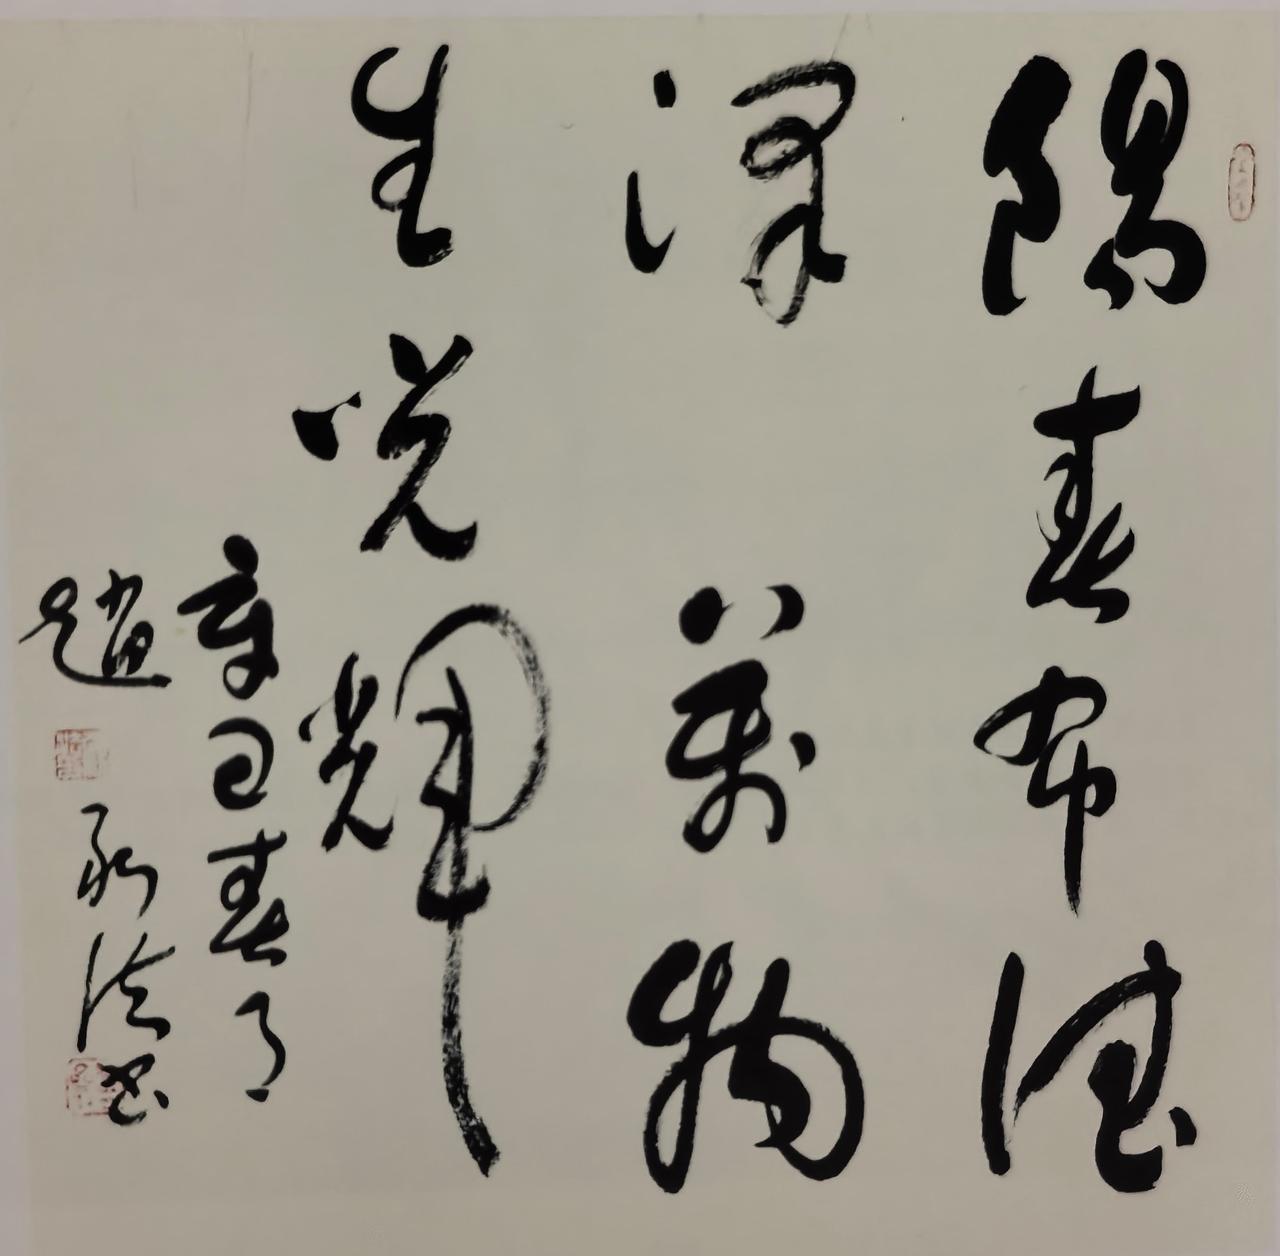 陽春布德
澤萬物
生光輝
辛丑春月
趙承德書